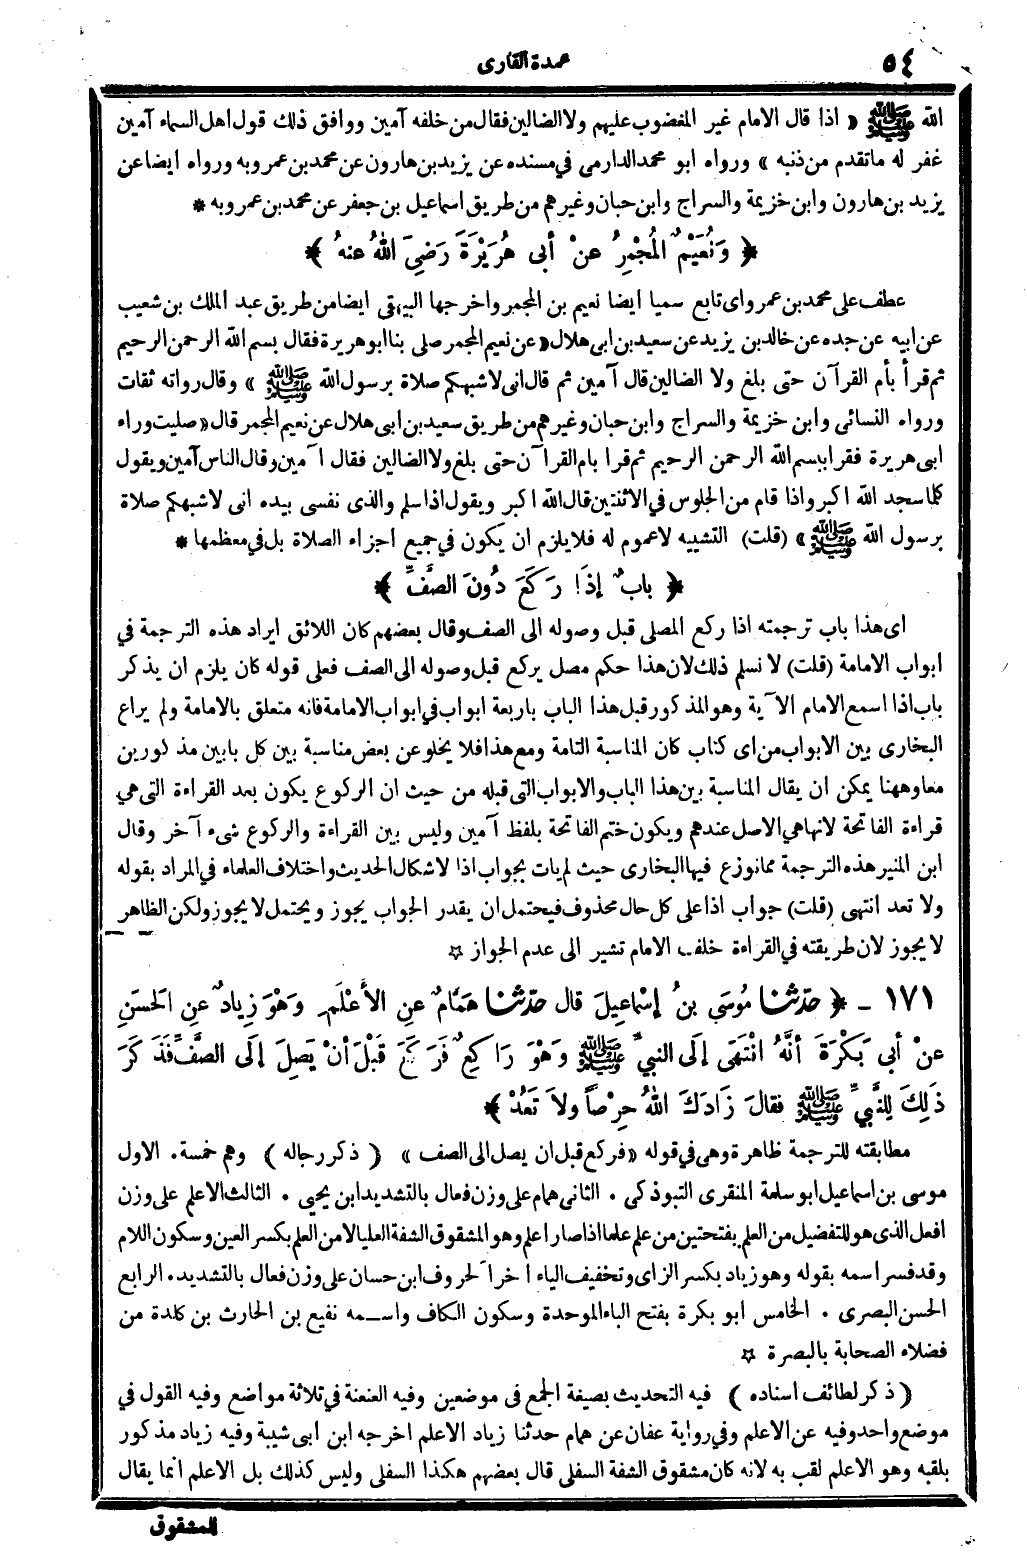 ٥٤
عمدة القارى
الله ﷺ « اذا قال الامام غير المغضوب عليهم ولا الضالين فقال من خلفه آمين ووافق ذلك قول اهل السماء آمين
غفر له ماتقدم من ذنبه » ورواه ابو محمد الدارمي في مسنده عن يزيد بن هارون عن محمد بن عمرو به ورواه ايضا عن
يزيد بن هارون وابن خزيمة والسراج وابن حبان وغيرهم من طريق اسماعيل بن جعفر عن محمد بن عمرو به *
﴿ وَنُعَيْمٌ المُجْمِرُ عنْ أبى هُرَيْرَةَ رَضِيَ اللهُ عنهُ ﴾
عطف على محمد بن عمرو اى تابع سميا ايضا نعيم بن المجمر واخرجها البيهقى ايضا من طريق عبد الملك بن شعيب
عن ابيه عن جده عن خالد بن يزيد عن سعيد بن ابى هلال « عن نعيم المجمر صلى بنا ابو هريرة فقال بسم الله الرحمن الرحيم
ثم قرأ بأم القرآن حتى بلغ ولا الضالين قال آمين ثم قال انى لاشبهكم صلاة برسول الله ﷺ » وقال رواته ثقات
ورواه النسائى وابن خزيمة والسراج وابن حبان وغيرهم من طريق سعيد بن ابى هلال عن نعيم المجمر قال « صليت وراء
ابى هريرة فقرا ببسم الله الرحمن الرحيم ثم قرا بام القرآن حتى بلغ ولا الضالين فقال آمين وقال الناس آمين ويقول
كلما سجد الله اكبر واذا قام من الجلوس في الاثنتين قال الله اكبر ويقول اذا سلم والذى نفسى بيده انى لاشبهكم صلاة
برسول الله ﷺ » (قلت) التشبيه لا عموم له فلا يلزم ان يكون في جميع اجزاء الصلاة بل في معظمها *
﴿ بابٌ إذَا رَكَعَ دُونَ الصَّفِّ ﴾
اى هذا باب ترجمته اذا ركع المصلى قبل وصوله الى الصف وقال بعضهم كان اللائق ايراد هذه الترجمة في
ابواب الامامة (قلت) لا نسلم ذلك لان هذا حكم مصل يركع قبل وصوله الى الصف فعلى قوله كان يلزم ان يذكر
باب اذا اسمع الامام الآية وهو المذكور قبل هذا الباب باربعة ابواب في ابواب الامامة فانه متعلق بالامامة ولم يراع
البخارى بين الابواب من اى كتاب كان المناسبة التامة ومع هذا فلا يخلو عن بعض مناسبة بين كل بابين مذكورين
معا وههنا يمكن ان يقال المناسبة بين هذا الباب والابواب التى قبله من حيث ان الركوع يكون بعد القراءة التى هي
قراءة الفاتحة لانها هى الاصل عندهم ويكون ختم الفاتحة بلفظ آمين وليس بين القراءة والركوع شىء آخر وقال
ابن المنير هذه الترجمة مما نوزع فيها البخارى حيث لم يات بجواب اذا لاشكال الحديث واختلاف العلماء في المراد بقوله
ولا تعد انتهى (قلت) جواب اذا على كل حال محذوف فيحتمل ان يقدر الجواب يجوز ويحتمل لا يجوز ولكن الظاهر
لا يجوز لان طريقته في القراءة خلف الامام تشير الى عدم الجواز ☆
١٧١ ـ ﴿ حدّثنا مُوسَى بنُ إسْماعِيلَ قال حدّثنا هَمّامٌ عنِ الأَعْلَمِ وَهْوَ زِيادٌ عنِ الحَسَنِ
عنْ أبى بَكْرَةَ أنَّهُ انْتَهَى إلَى النبيِّ ﷺ وَهْوَ رَاكِعٌ فَرَكَعَ قَبْلَ أنْ يَصِلَ إلَى الصَّفِّ فَذَكَرَ
ذَلِكَ لِلنَّبيِّ ﷺ فقالَ زَادَكَ اللهُ حِرْصاً ولاَ تَعُدْ ﴾
مطابقته للترجمة ظاهرة وهى في قوله « فركع قبل ان يصل الى الصف » ( ذكر رجاله ) وهم خمسة . الاول
موسى بن اسماعيل ابو سلمة المنقرى التبوذكى . الثانى همام على وزن فعال بالتشديد ابن يحيى . الثالث الاعلم على وزن
افعل الذى هو للتفضيل من العلم بفتحتين من علم علما اذا صار اعلم وهو المشقوق الشفة العليا لا من العلم بكسر العين وسكون اللام
وقد فسر اسمه بقوله وهو زياد بكسر الزاى وتخفيف الياء آخر الحروف ابن حسان على وزن فعال بالتشديد . الرابع
الحسن البصرى . الخامس ابو بكرة بفتح الباء الموحدة وسكون الكاف واســمه نفيع بن الحارث بن كلدة من
فضلاء الصحابة بالبصرة ☆
( ذكر لطائف اسناده ) فيه التحديث بصيغة الجمع فى موضعين وفيه العنعنة في ثلاثة مواضع وفيه القول في
موضع واحد وفيه عن الاعلم وفي رواية عفان عن همام حدثنا زياد الاعلم اخرجه ابن ابى شيبة وفيه زياد مذكور
بلقبه وهو الاعلم لقب به لانه كان مشقوق الشفة السفلى قال بعضهم هكذا السفلى وليس كذلك بل الاعلم انما يقال
المشقوق